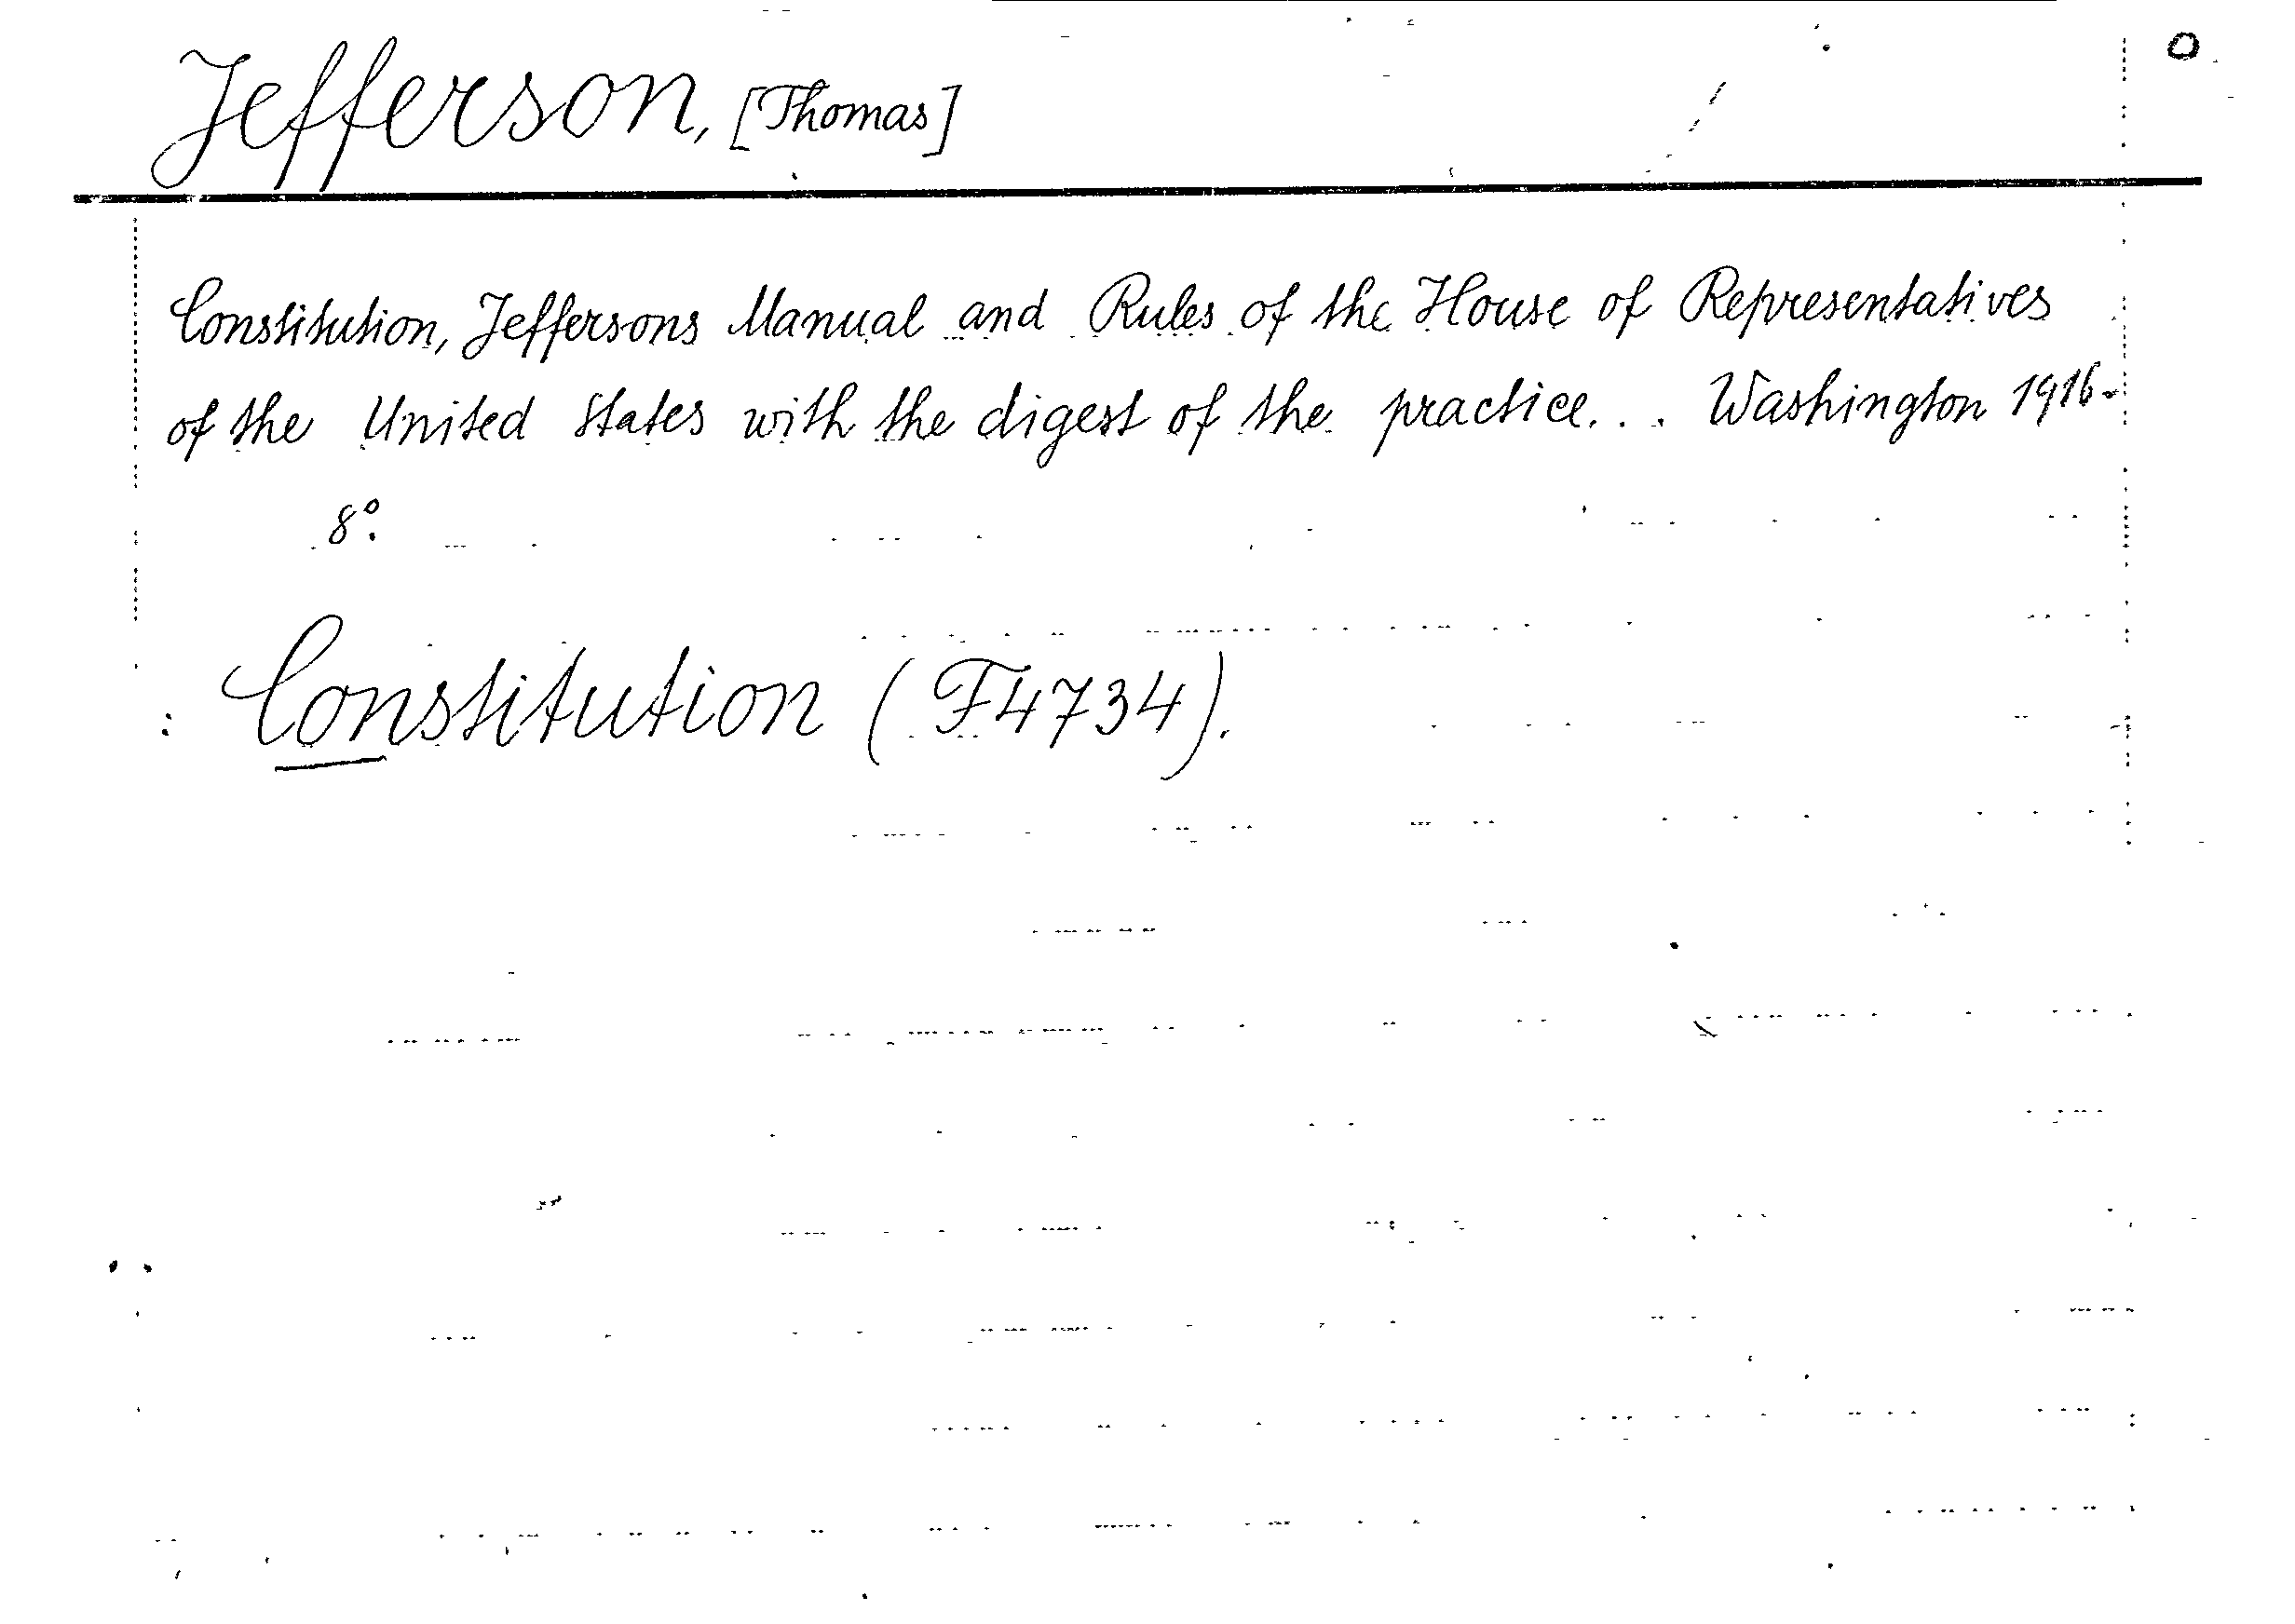 Jefferson, [Thomas]
Constitution, Jeffersons Manual and Rules of the House of Representatives
of the United States with the digest of the practice... Washington 1916-
8°.
Constitution (F4734).